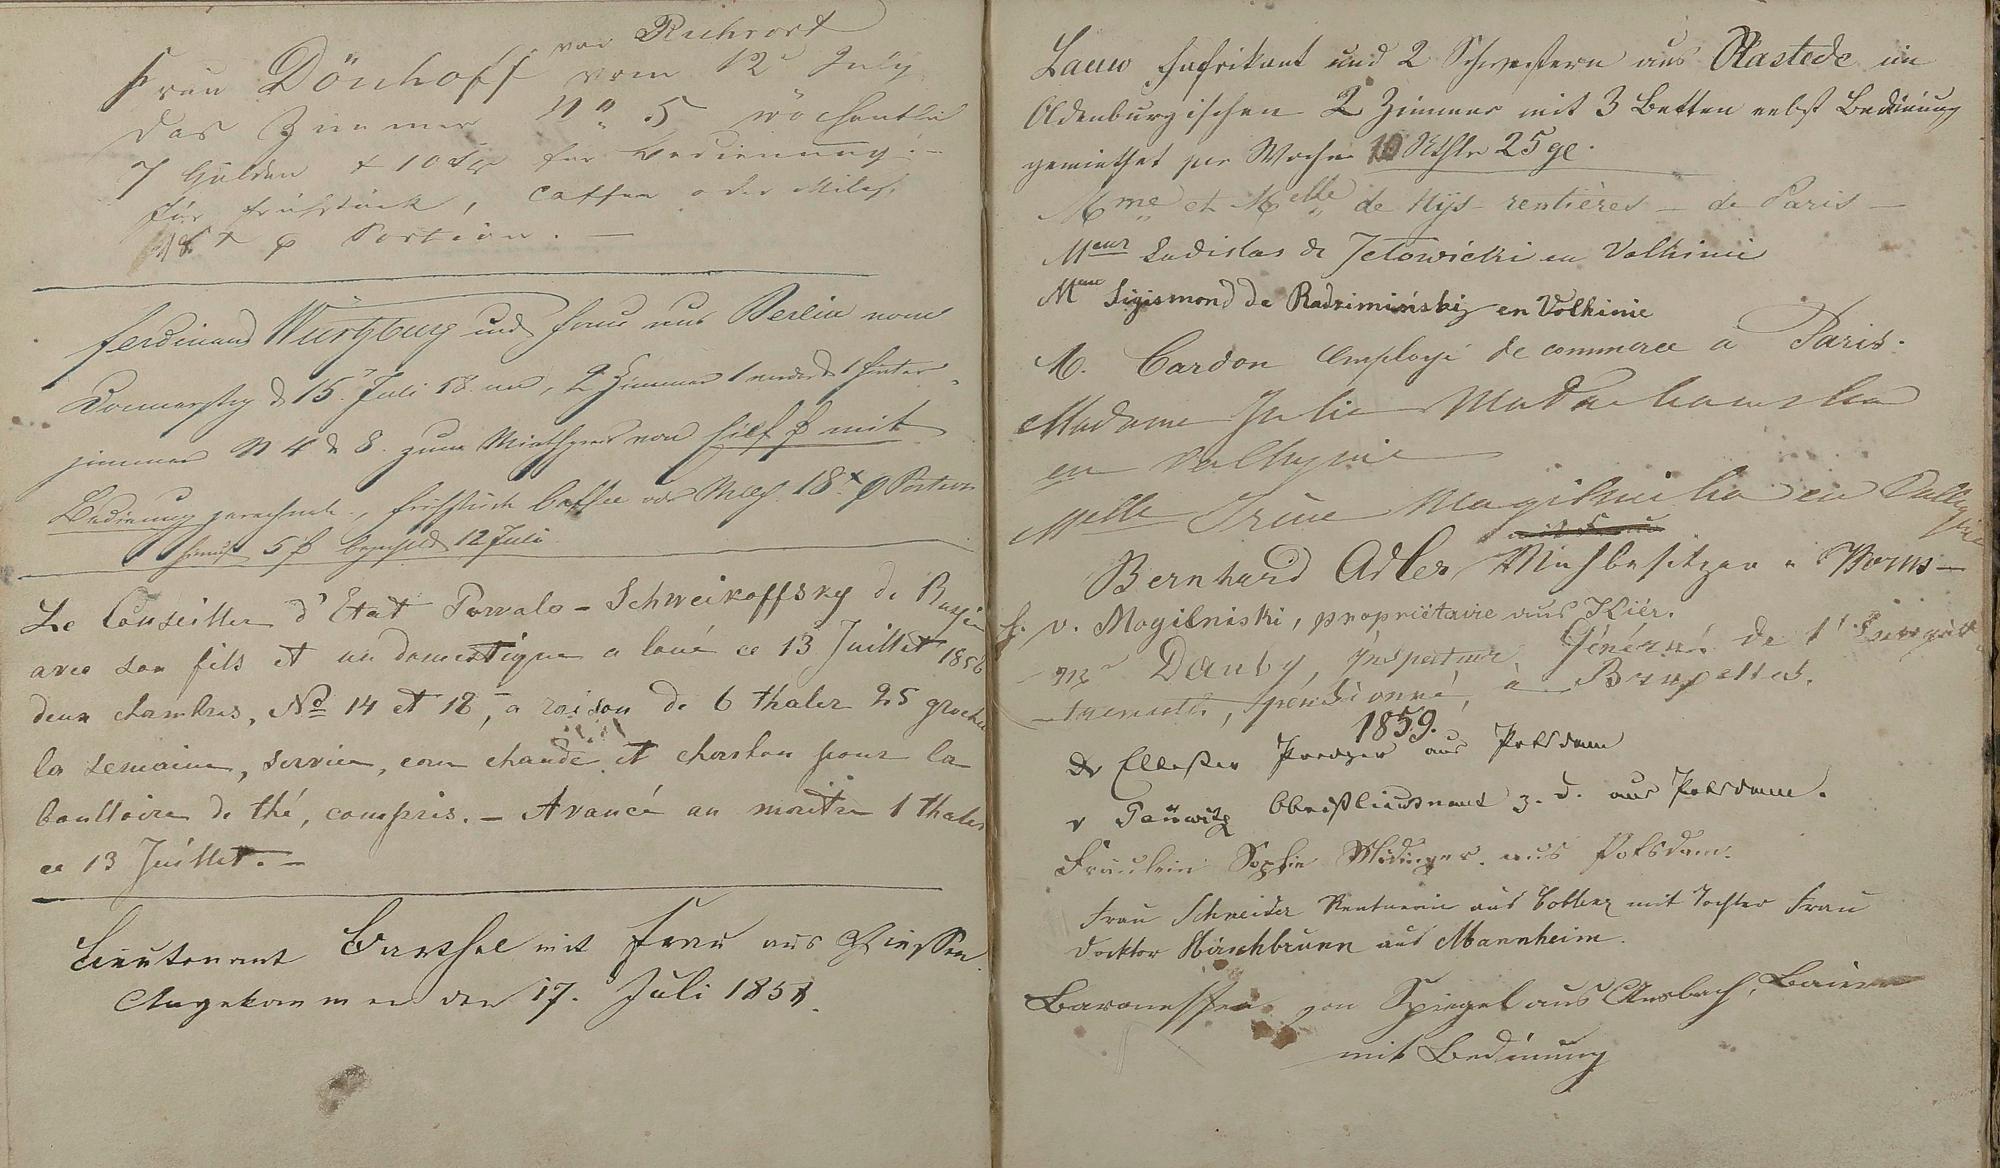 von Ruhrort
Frau Dönhoff vom 12t July
das Zimmer No 5 wöchentlich
7 Gulden & 10 Sgr für Bedienung.-
für Frühstück, Caffee oder Milch,
18 x p Portion. -
Ferdinand Würtzburg und Frau aus Berlin vom
Donnerstag d 15. Juli 58 an, 2 Zimmer 1 vorder & 1 hinter
zimmer N 4 & 8. zum Miethpreis von elf f mit
Bedienung gerechnet, Frühstück Caffee oder Milch 18 x p Portion
hierauf 5 f bezahlt 12 Juli
Le Conseiller d'Etat Powalo-Schweikoffsky de Russie
avec son fils et un domestique a loué ce 13 Juillet 1858
deux chambres, No 14 et 18, a raison de 6 thaler 25 groschen
la semaine, service, eau chaude et charbon pour la
bouilloire de thé, compris. - Avancé au maitre 1 thaler
ce 13 Juillet. -
Lieutenant Barthel mit Frau aus Giessen.
Angekommen den 17. Juli 1858.
Lauw Fabrikant und 2 Schwestern aus Rastede im
Oldenburgischen 2 Zimmer mit 3 Betten nebst Bedienung
gemiethet per Woche 10 Rthlr 25 gr.
Mme et Melle de Nys rentières - de Paris -
Meur Ladislas de Jelowicki en Volhinie
Mme Sigismond de Radzimiński en Volhinie
M. Cardon Employé de commerce a Paris.
Madame Julie
en Volhynie
Melle Irène Mogilnicka en Volhynie
Bernhard Adler Mühlbesitzer a Worms -
H. v. Mogilniski, propriétaire aus Kiev.
Mr Dauby, Inspecteur Général de l'Enregist-
-trement, pensionné, a Bruxelles.
1859.
Prediger aus Potsdam
v Obristlieutnant z. D. aus Potsdam.
Fräulein Sophie aus Potsdam.
Frau Schneider Rentnerin aus Coblenz mit Tochter Frau
Docktor Hirschbrunn aus Mannheim.
Baronessen von Spiegel aus Ansbach, Baiern
mit Bedinung